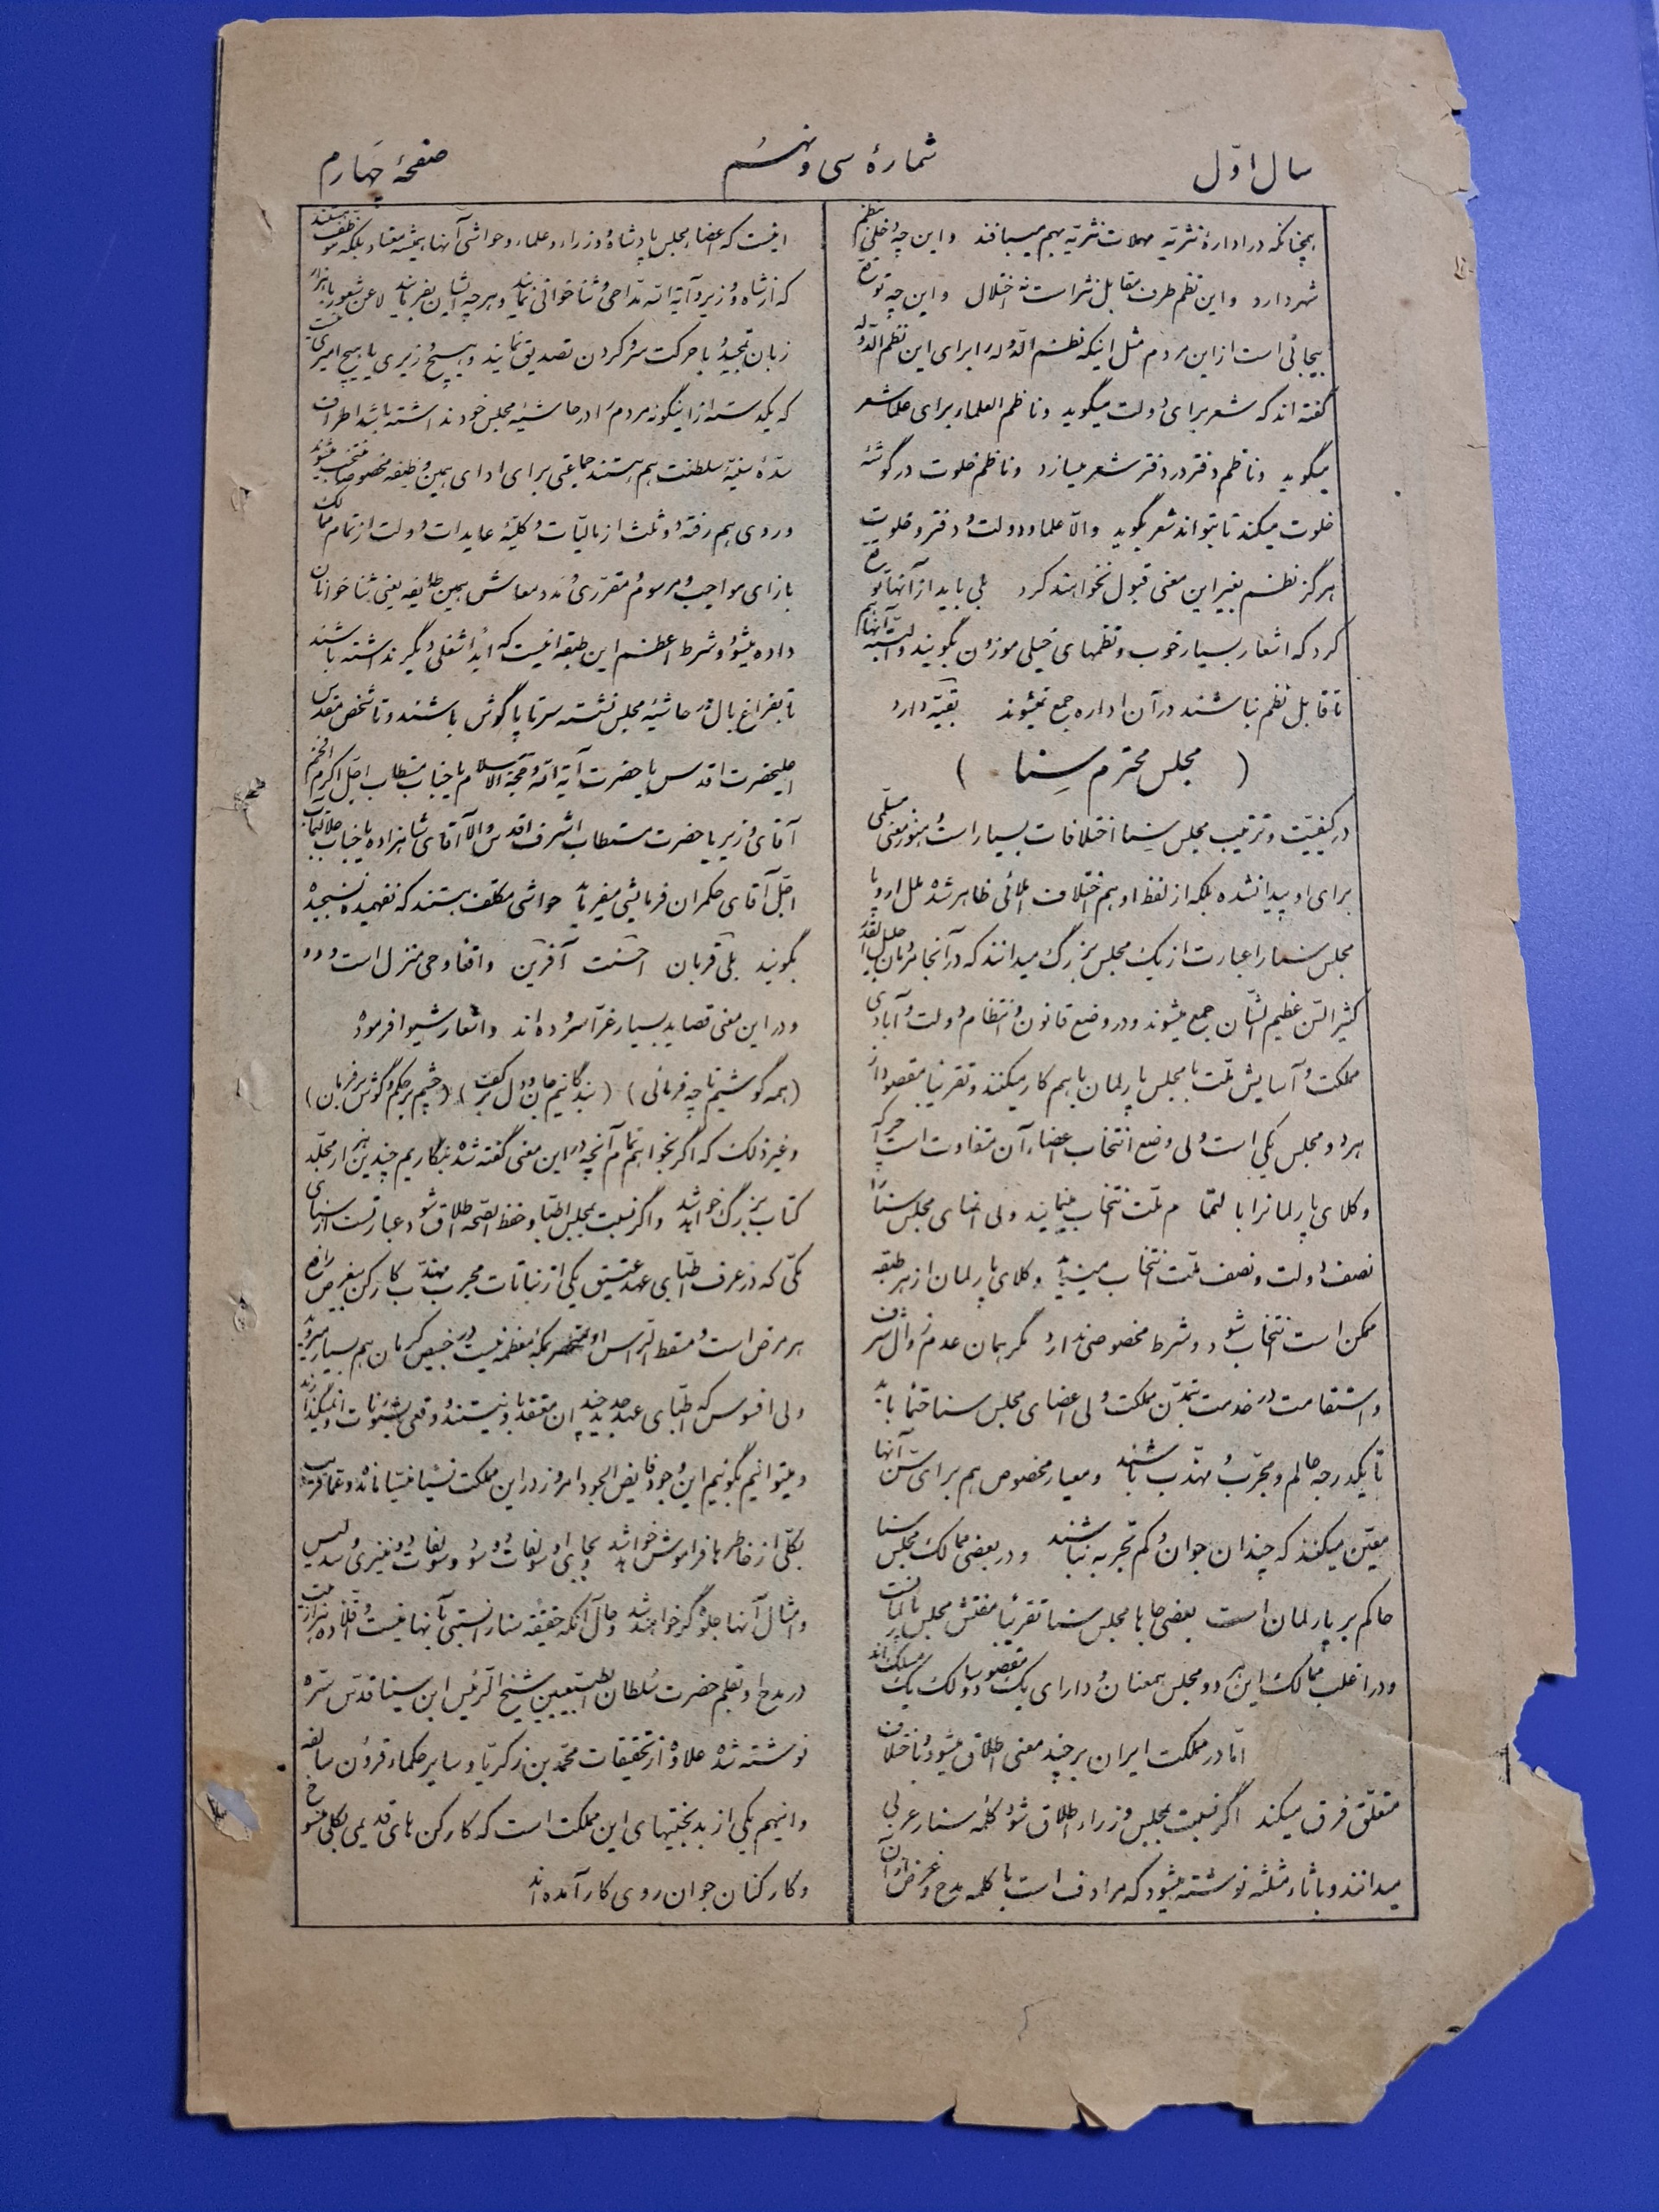 سال اوّل
شمارهٔ سی و نهم
صفحهٔ چهارم
همچنانکه در ادارهٔ نثریّه مهملات نثریّه بهم میبافند واین چه دخلی بنظم
شهر دارد واین نظم طرف مقابل نثر است نه اختلال واین چه توقع
بیجائی است ازاین مردم مثل اینکه نظم الدّوله را برای این نظم الدّوله
گفته اند که شعر برای دولت میگوید وناظم العلماء برای علما شعر
میگوید وناظم دفتر در دفتر شعر میسازد وناظم خلوت در گوشهٔ
خلوت میکند تا بتواند شعر بگوید والّا علما ودولت ودفتر وخلوت
هرگز نظم بغیر این معنی قبول نخواهند کرد بلی باید از آنها توقع
کرد که اشعار بسیار خوب ونظمهای خیلی موزون بگویند والبتّه آنها هم
تا قابل نظم نباشند درآن اداره جمع نمیشوند بقیّه دارد
( مجلس محترم سِنا )
در کیفیّت وترتیب مجلس سِنا اختلافات بسیار است وهنوز معنی مسلّمی
برای او پیدا نشده بلکه از لفظ او هم اختلاف املائی ظاهر شده ملل اروپا
مجلس سنا را عبارت از یک مجلس بزرگ میدانند که در آنجا مردمان جلیل القدر
کثیر السّن عظیم الشّان جمع میشوند ودر وضع قانون وانتظام دولت وآبادی
مملکت وآسایش ملّت با مجلس پارلمان باهم کار میکنند وتقریباً مقصود از
هردو مجلس یکی است ولی وضع انتخاب اعضاء آن متفاوت است چرا که
وکلای پارلمانرا بالتمام ملّت انتخاب مینمایند ولی اعضای مجلس سنا را
نصف دولت ونصف ملّت انتخاب مینماید وکلای پارلمان از هر طبقه
ممکن است انتخاب شود وشرط مخصوصی ندارد مگر همان عدم زوال شرف
واستقامت در خدمت بتمدّن مملکت ولی اعضای مجلس سنا حتماً باید
تا یکدرجه عالم ومجرّب ومهذّب باشند ومعیار مخصوص هم برای سنّ آنها
معیّن میکنند که چندان جوان وکم تجربه نباشند ودر بعضی ممالک مجلس سنا
حاکم بر پارلمان است بعضی جاها مجلس سنا تقریباً مفتّش مجلس پارلمانست
ودر اغلب ممالک این هر دو مجلس همعنان ودارای یک مقصود وسالک یک مسلک اند
امّا در مملکت ایران بر چند معنی اطلاق میشود وباختلاف
متعلّق فرق میکند اگر نسبت بمجلس وزراء اطلاق شود کلمه سنا را عربی
میدانند وباثاء مثلّثه نوشته میشود که مرادف است با کلمه مدح وغرض ازآن
اینست که اعضاء مجلس پادشاه ووزراء وعلماء وحواشی آنها همیشه معتاد بلکه موظّف هستند
که از شاه ووزیر وآیة الله مدّاحی وثناخوانی نمایند وهرچه ایشان بفرمایند لاعن شعور با هزار
زبان تمجید ویا حرکت سر وگردن تصدیق نمایند وهیچ وزیری یا هیچ امیری نیست
که یکدسته از اینگونه مردم را در حاشیهٔ مجلس خود نداشته باشد اطراف
سدّهٔ سنیّهٔ سلطنت هم هستند جماعتی برای ادای همین وظیفه مخصوصاً منتخب میشوند
وروی هم رفته دو ثلث از مالیّات وکلیّهٔ عایدات دولت از تمام ممالک
بازای مواجب ومرسوم ومقرّری ومدد معاش بهمین طایفه یعنی ثناخوانان
داده میشود وشرط اعظم این طبقه اینست که ابداً شغلی دیگر نداشته باشند
تا بفراغ بال در حاشیهٔ مجلس نشسته سرتاپا گوش باشند وتا شخص مقدس
اعلیحضرت اقدس یا حضرت آیة الله وحجّة الاسلام یا جناب مستطاب اجلّ اکرم افخم
آقای وزیر یا حضرت مستطاب اشرف اقدس والا آقای شاهزاده یا جناب جلالتمآب
اجلّ آقای حکمران فرمایشی میفرماید حواشی مکلّف هستند که نفهمیده نسنجیده
بگویند بلی قربان احسنت آفرین واقعاً وحی منزل است ووو
ودر این معنی قصاید بسیار غرّا سروده اند واشعار شیوا فرموده
(همه گوشیم تا چه فرمائی) ( بندگانیم جان ودل بر کف ) (چشم بر حکم وگوش بر فرمان)
وغیر ذلک که اگر بخواهیم تمام آنچه در این معنی گفته شده بنگاریم چندین هزار مجلّد
کتاب بزرگ خواهد شد واگر نسبت بمجلس اطبّا وحفظ الصّحه اطلاق شود عبارتست از سنای
مکّی که در عرف اطبّای عهد عتیق یکی از نباتات مجرب مهذّب کارکن بیغرض رافع
هر مرض است ومسقط الرّاس او منحصر بمکّه معظّمه نیست در خبیص کرمان هم بسیار میروید
ولی افسوس که اطبّای عهد جدید چندان معتقد باو نیستند
ومیتوانیم بگوئیم این وجود فایض الجود امروز در این مملکت نسیاً منسیّا مانده وعماقریب
بکلّی از خاطرها فراموش خواهد شد وبجای او سولفات دو سود وسولفات دو منیزی وسدلیس
وامثال آنها جلوه گر خواهد شد وحال آنکه حقیقةً سنا را نسبتی بآنها نیست
در مدح او بقلم حضرت سُلطان الطّبیعیین شیخ الرّئیس ابن سینا قدّس سرّه
نوشته شده علاوه از تحقیقات محمّد بن زکریّا وسایر حکماء قرون سالفه
واینهم یکی از بدبختیهای این مملکت است که کارکن های قدیمی بکلّی منسوخ
وکارکنان جوان روی کار آمده اند